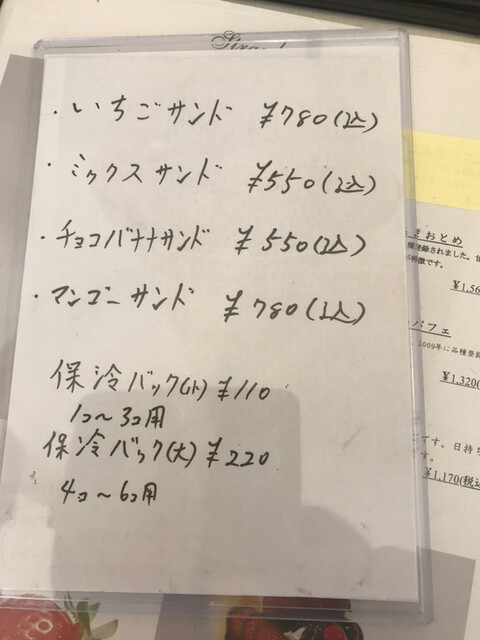 ・いちごサンド ¥780(込)
・ミックスサンド ¥550(込)
・チョコバナナサンド ¥550(込)
・マンゴーサンド ¥780(込)
保冷バック(小) ¥110
1コ〜3コ用
保冷バック(大) ¥220
4コ〜6コ用
おとめ
登録されました。
特徴です。
¥1,56
パフェ
2009年に品種登録
¥1,320(
です。日持ち
す。
¥1,170(税込